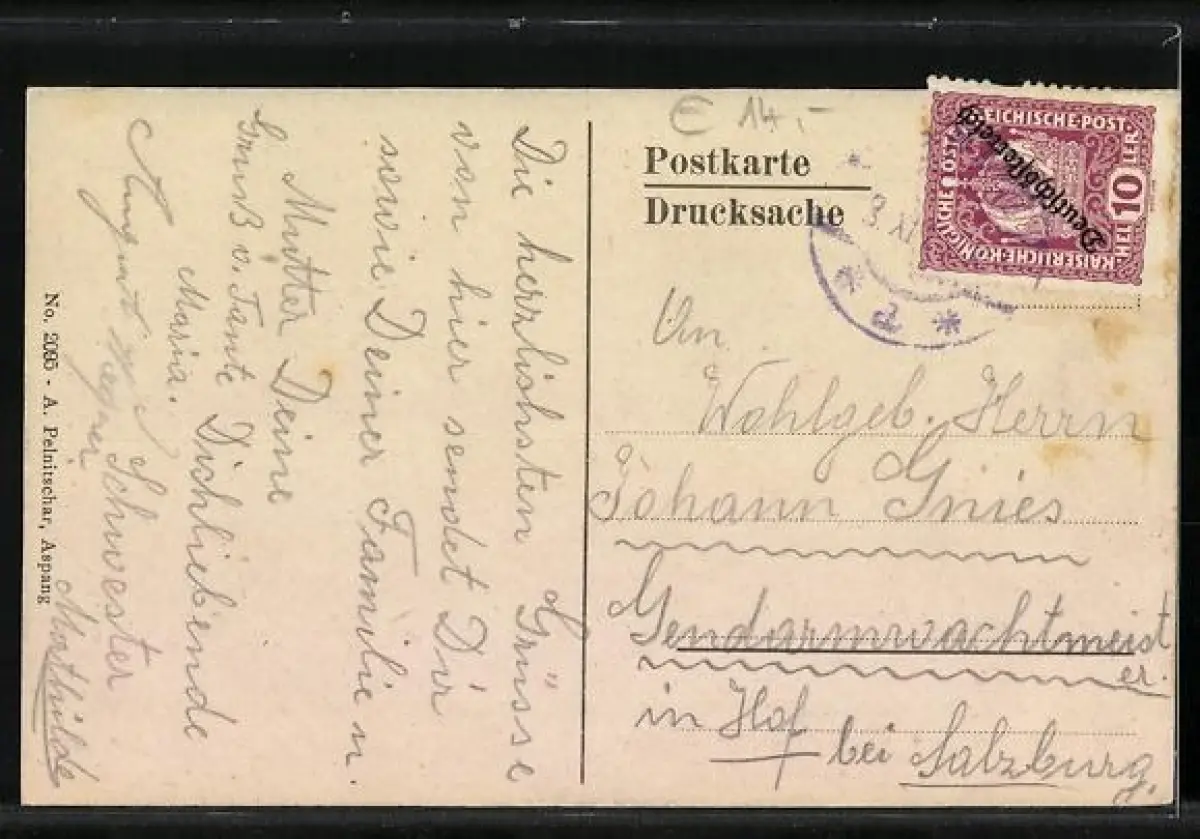 € 14,-
Postkarte
Drucksache
KAISERLICHE KÖNIGLICHE ÖSTERREICHISCHE POST
HELLER
10
Deutschösterreich
An
Wohlgeb. Herrn
Johann Gnies
Gendarmwachtmeist
er.
in Hof
bei Salzburg.
Die herrlichsten Grüsse
von hier sendet Dir
sowie Deiner Familie u.
Mutter Deine
Dichliebende
Schwester
Mathilde
Gruß v. Tante
Maria.
No. 2095 · A. Pelnitschar, Aspang